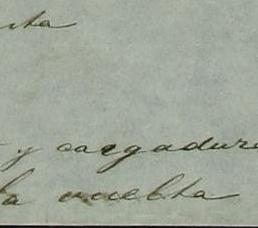 y cargadure
la vuelta